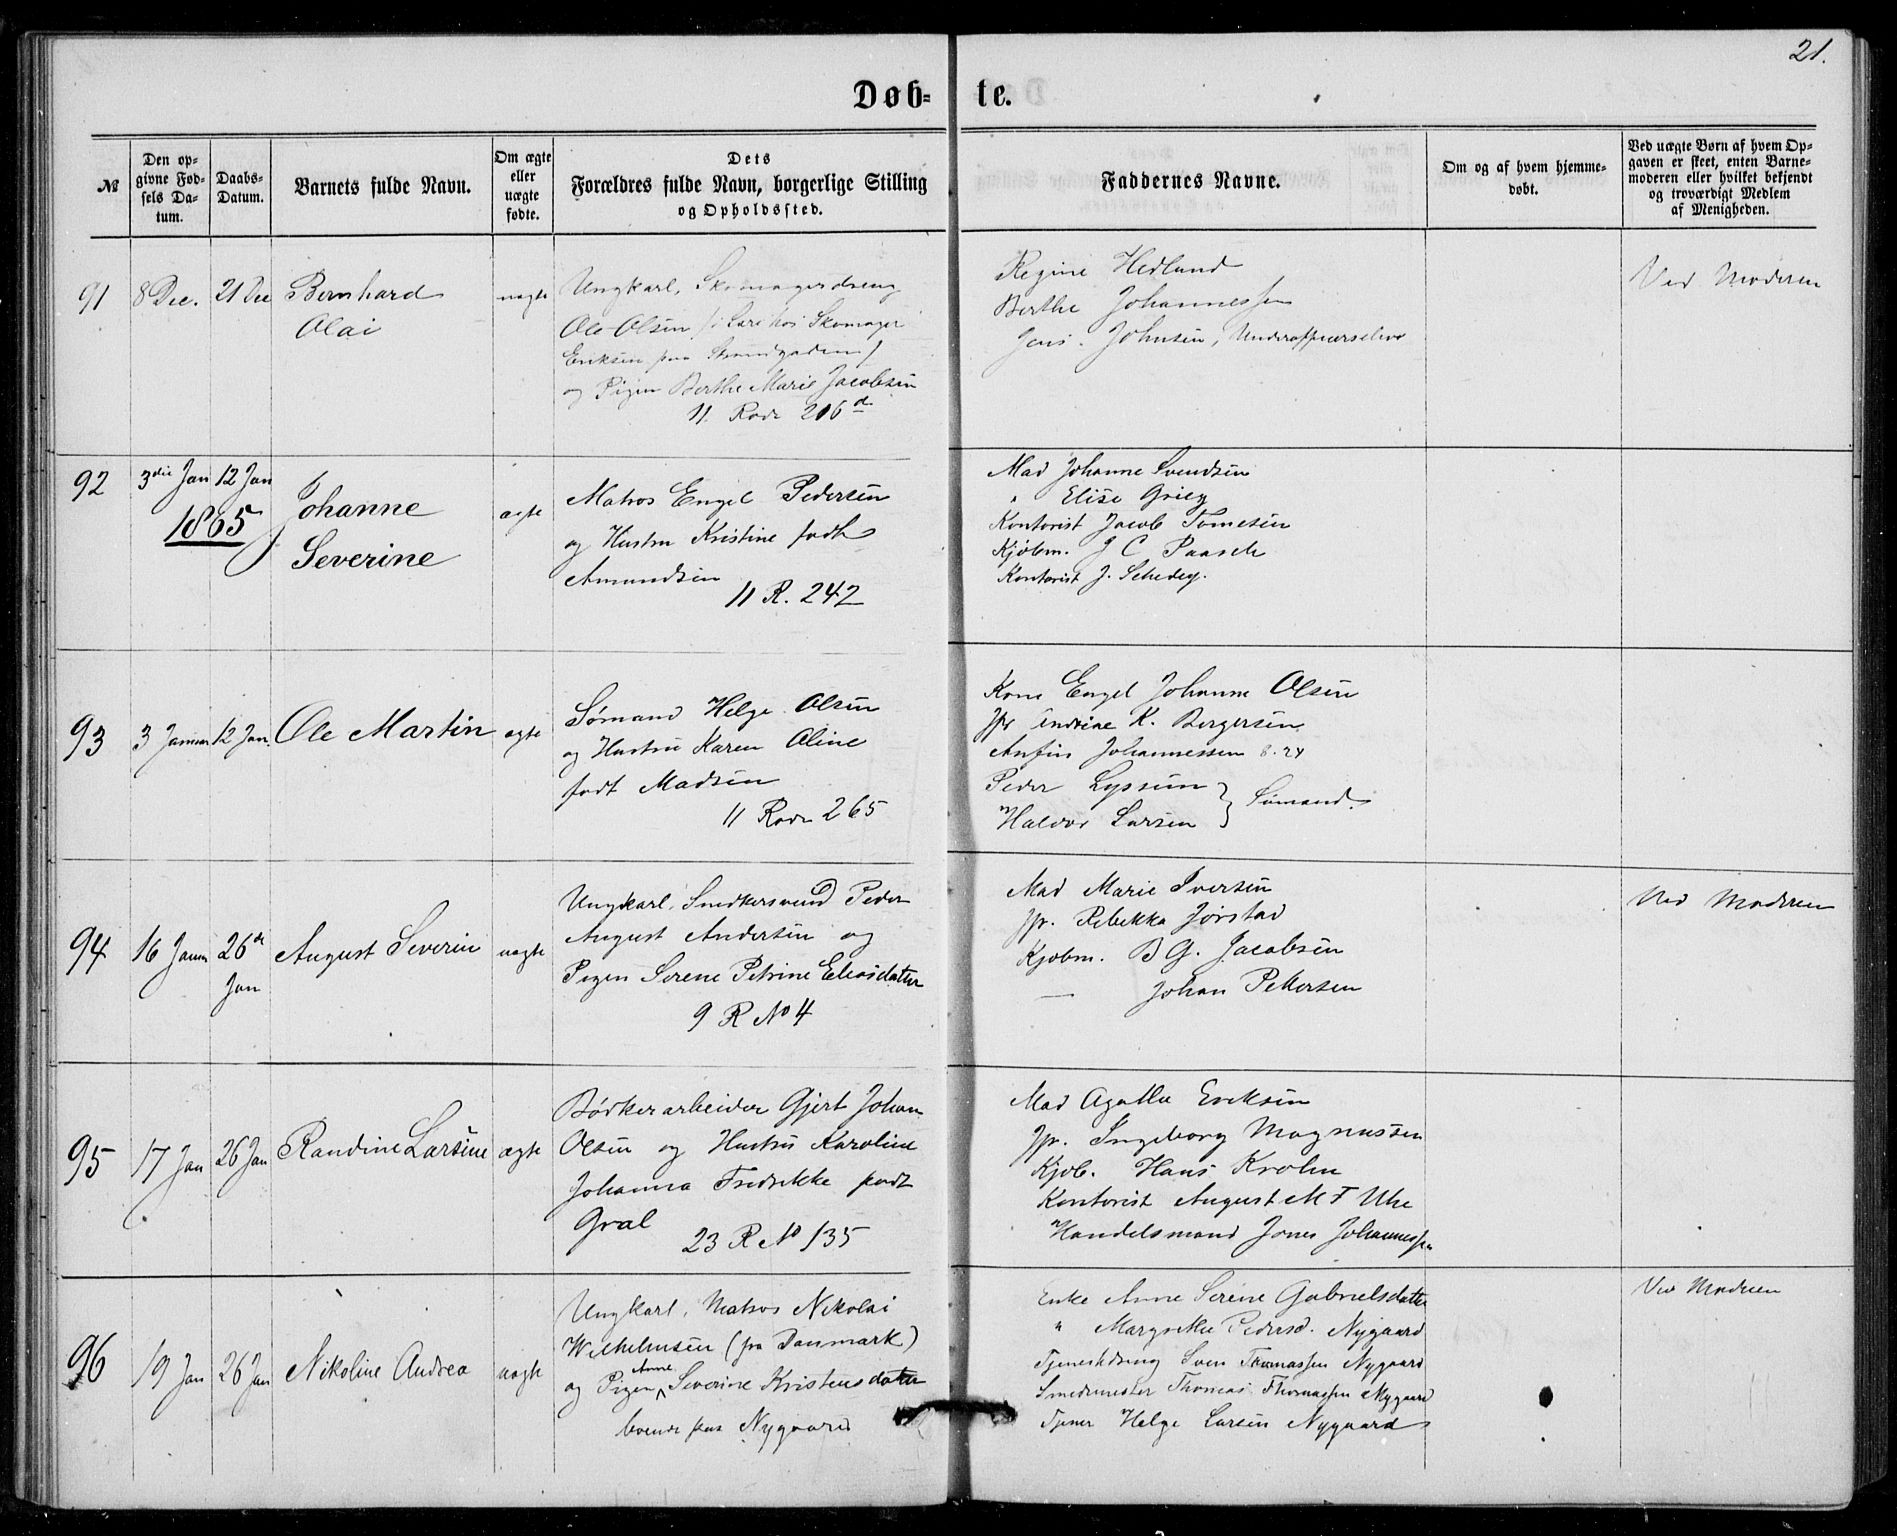 21.
Døb-te.
№
Den op-
givne Fød-
sels Da-
tum.
Daabs-
Datum.
Barnets fulde Navn.
Om ægte
eller
uægte
fødte.
Dets
Forældres fulde Navn, borgerlige Stilling
og Opholdssted.
Faddernes Navne.
Om og af hvem hjemme-
døbt.
Ved uægte Børn af hvem Op-
gaven er skeet, enten Barne-
moderen eller hvilket bekjendt
og troværdigt Medlem
af Menigheden.
91
8 Dec.
21 Dec
Bernhard
Olai
uægte
Ungkarl, Skomagerdreng
Ole Olsen (i Lære hos Skomager
Eriksen paa Strandgaden)
og Pigen Berthe Marie Jacobsen
11 Rode 206 d
Regine Hedlund
Berthe Johannessen
Jens Johnsen, Underofficerselev
Ved Moderen
92
3die Jan
1865
12 Jan
Johanne
Severine
ægte
Matros Engel Pedersen
og Hustru Kristine født
Amundsen
11 R. 242
Mad Johanne Svendsen
" Elise Grieg
Kontorist Jacob Tomesen
Kjøbm. J C Paasch
Kontorist J. Schedey.
93
3 Januar
12 Jan.
Ole Martin
ægte
Sømand Helge Olsen
og Hustru Karen Oline
født Madsen
11 Rode 265
Kone Engel Johanne Olsen
Jfr Andrine K. Bergersen
Anfin Johannessen 8.24
Peder Lyssen
Haldor Larsen } Sømænd
94
16 Januar
26de
Jan
August Severin
uægte
Ungkarl, Snedkersvend Peder
August Andersen og
Pigen Serene Petrine Eliasdatter
9 R No 4
Mad Marie Iversen
Jfr. Rebekka Jørstad
Kjøbm. B G. Jacobsen
— Johan Pettersen
Ved Moderen
95
17 Jan
26 Jan
Randine Larsine
ægte
Bødkerarbeider Gjert Johan
Olsen og Hustru Karoline
Johanna Fredrikke født
Gral
23 R No 135
Mad Agathe Eriksen
Jfr. Ingeborg Magnussen
Kjøb. Hans Krohn
Kontorist August M F Uhe
Handelsmand Jones Johannessen
96
19 Jan
26 Jan
Nikoline Andrea
uægte
Ungkarl, Matros Nikolai
Wilhelmsen (fra Danmark)
og Pigen Anne Severine Kristensdatter
boende paa Nygaard
Enke Anne Serine Gabrielsdatter
" Margrethe Pedersd. Nygaard
Tjenestdreng Sven Thomassen Nygaard
Smedmester Thomas Thomassen Nygaard
Tjener Helge Larsen Nygaard
Ved Moderen